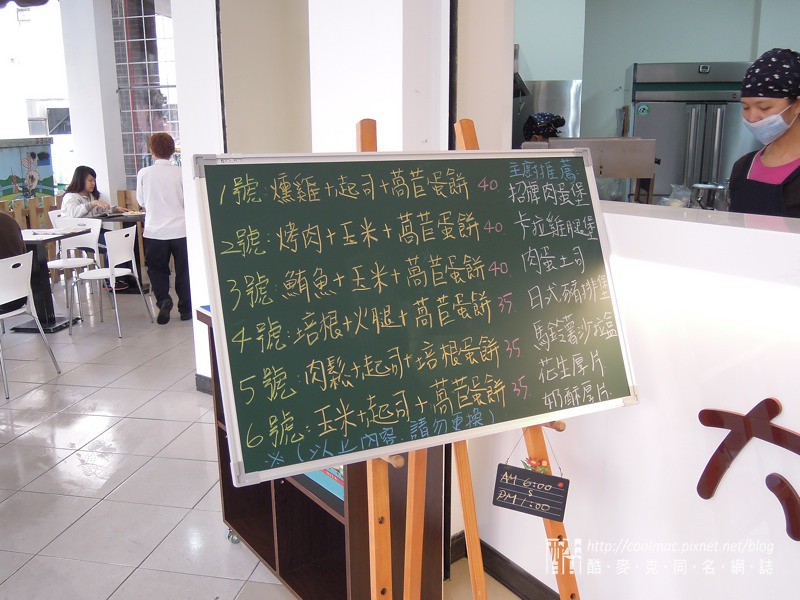 1號：燻雞+起司+萵苣蛋餅 40
2號：烤肉+玉米+萵苣蛋餅 40
3號：鮪魚+玉米+萵苣蛋餅 40
4號：培根+火腿+萵苣蛋餅 35
5號：肉鬆+起司+培根蛋餅 35
6號：玉米+起司+萵苣蛋餅 35
※(以上內容，請勿更換)
主廚推薦：
招牌肉蛋堡
卡拉雞腿堡
肉蛋土司
日式豬排堡
馬鈴薯沙拉盒
花生厚片
奶酥厚片
AM 6:00
PM 1:00
http://conimac.pixnet.net/blog
酷·麥·克·同·名·網·誌